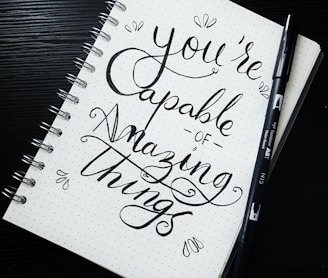 you're
Capable
-OF-
Amazing
Things
ABT
N15